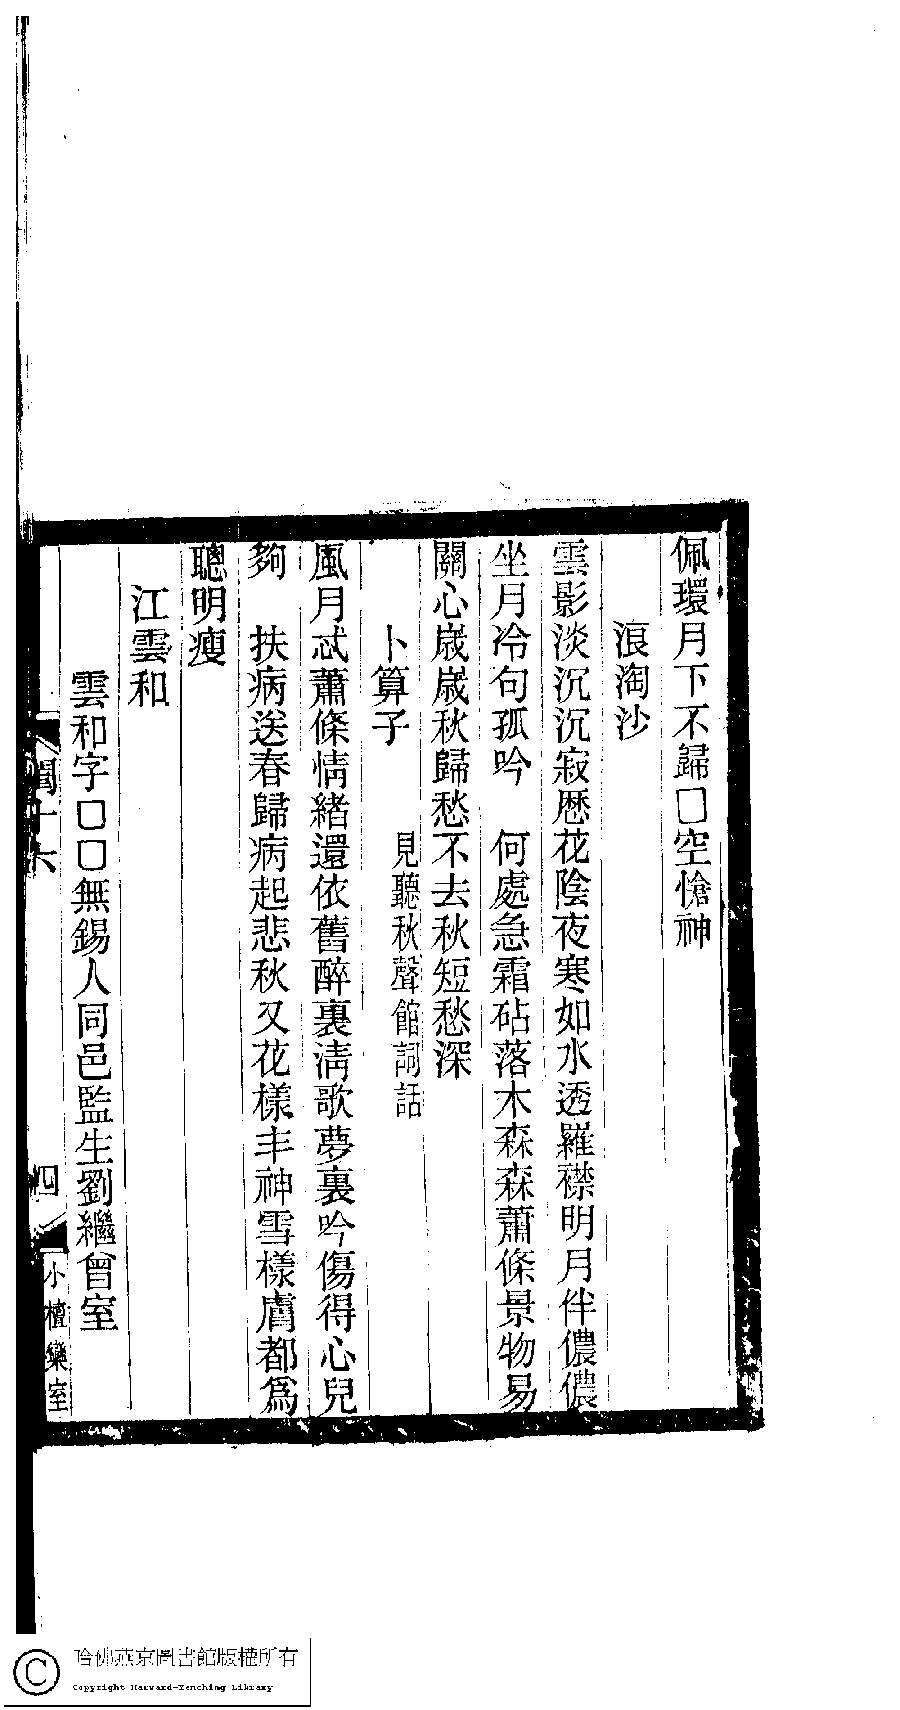 佩環月下不歸□空愴神
浪淘沙
雲影淡沉沉寂歷花陰夜寒如水透羅襟明月伴儂儂
坐月冷句孤吟　何處急霜砧落木森森蕭條景物易
關心歲歲秋歸愁不去秋短愁深
卜算子　見聽秋聲館詞話
風月忒蕭條情緒還依舊醉裏淸歌夢裏吟傷得心兒
夠　扶病送春歸病起悲秋又花樣丰神雪樣膚都爲
聰明瘦
江雲和
雲和字□□無錫人同邑監生劉繼曾室
閨十六
四
小檀欒室
哈佛燕京圖書館版權所有
Copyright Harvard-Yenching Library